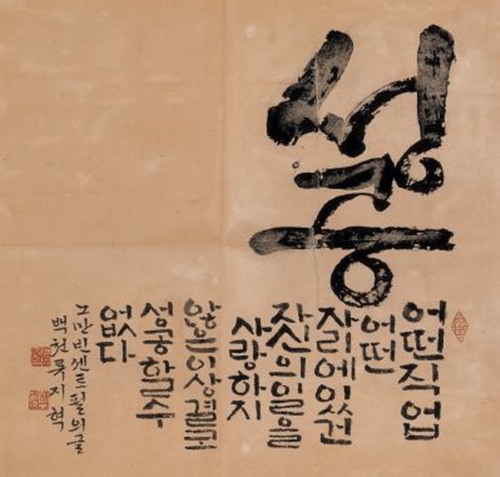 성공
어떤직업
어떤
자리에있건
자신의일을
사랑하지
않는이상결코
성공할수
없다
노만빈센트필의글
백천류지혁